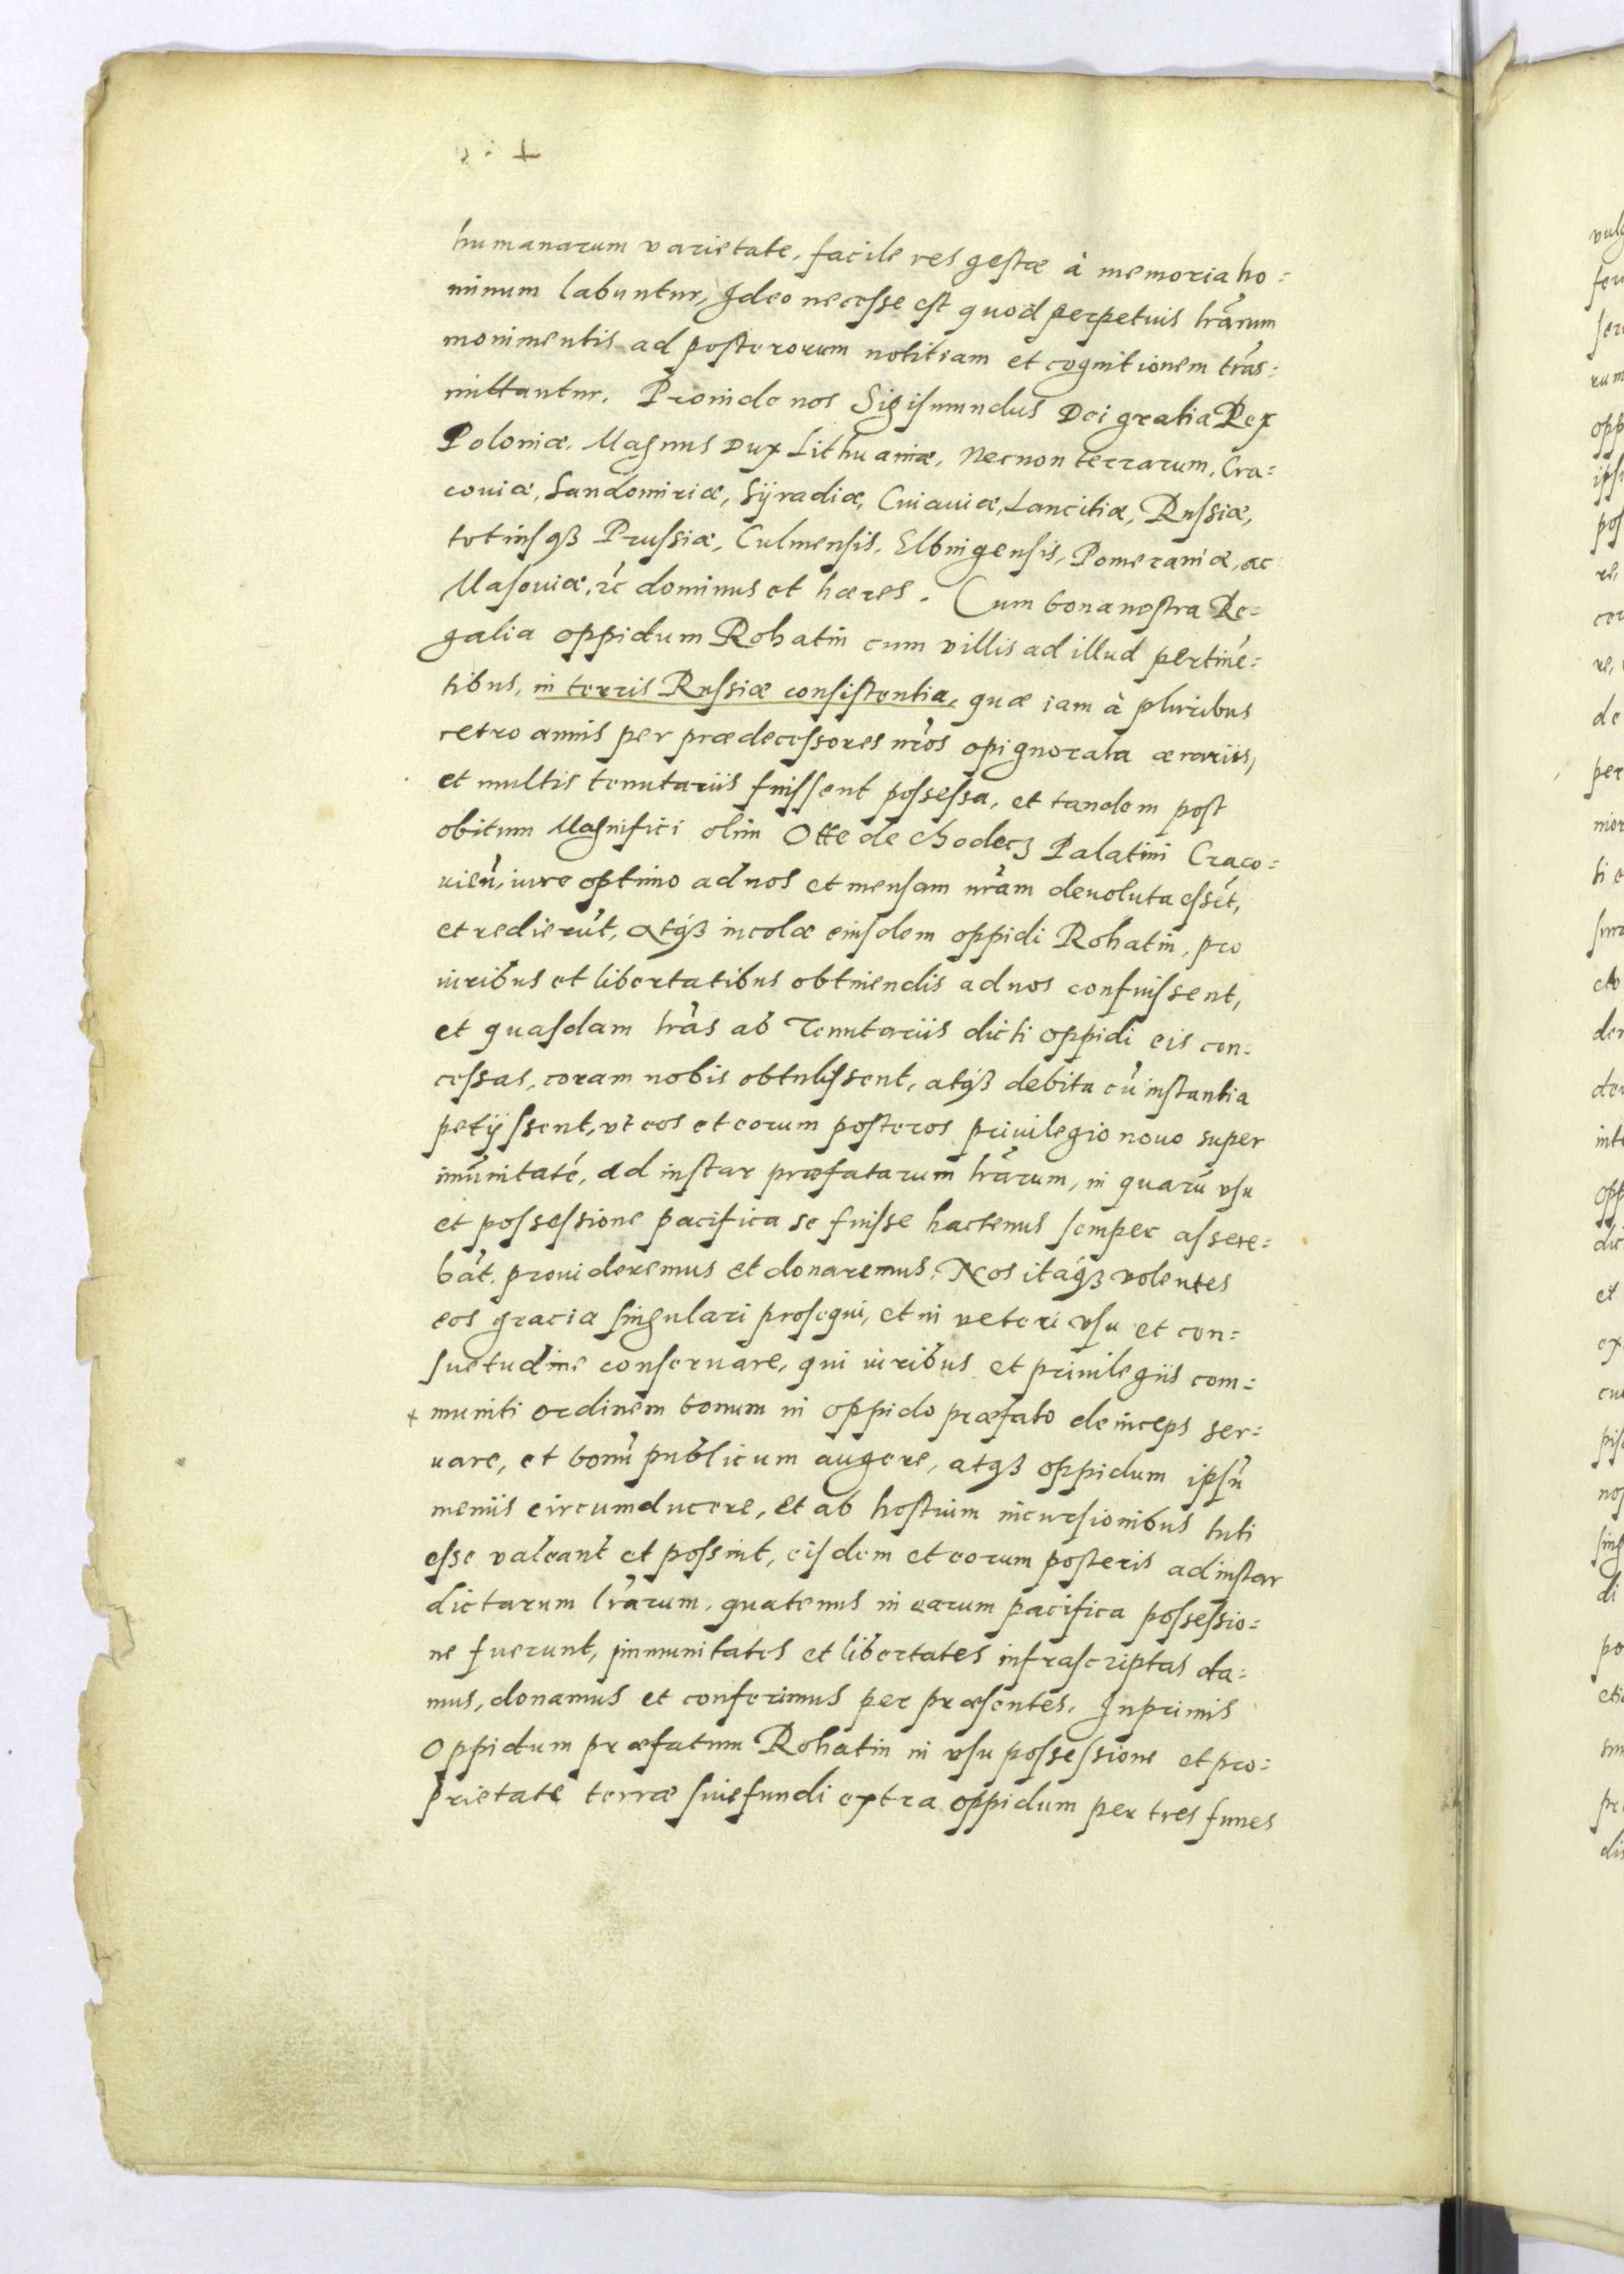 humanarum varietate, facile res gestæ à memoria ho=
minum labuntur, Ideo necesse est quod perpetuis lrãrum
monimentis ad posterorum notitiam et cognitionem trãs=
mittantur. Proinde nos Sigismundus Dei gratia Rex
Poloniæ, Magnus Dux Lithuaniæ, Necnon terrarum, Cra=
couiæ, Sandomiriæ, Sÿradiæ, Cuiauiæ, Lancitiæ, Russiæ,
totiusqȝ Prussiæ, Culmensis, Elbingensis, Pomeraniæ, ac
Masouiæ, &c dominus et hæres. Cum bona nostra Re=
galia oppidum Rohatin cum villis ad illud pertinẽ=
tibus, in terris Russiæ consistentia, quæ iam à pluribus
retro annis per prædecessores nr̃os opignorata ærariis,
et multis tenutariis fuissent possessa, et tandem post
obitum Magnifici olim Otte de Chodecz Palatini Craco=
uieñ, iure optimo ad nos et mensam nr̃am deuoluta essẽt,
et redierũt, atqȝ incolæ eiusdem oppidi Rohatin, pro
iuribus et libertatibus obtinendis ad nos confuissent,
et quasdam lr̃as ab Tenutariis dicti oppidi eis con=
cessas, coram nobis obtulissent, atqȝ debita cũ instantia
petÿssent, vt eos et eorum posteros priuilegio nouo super
imũnitatẽ, ad instar præfatarum lrãrum, in quarũ vsu
et possessione pacifica se fuisse hactenus semper assere=
bãt, prouideremus et donaremus. Nos itaqȝ volentes
eos gracia singulari prosequi, et in veteri vsu et con=
suetudine conseruare, qui iuribus et priuilegiis com=
+ muniti ordinem bonum in oppido præfato deinceps ser=
uare, et bonũ publicum augere, atqȝ oppidum ipsũ
meniis circumducere, et ab hostium incursionibus tuti
esse valeant et possint, eisdem et eorum posteris ad instar
dictarum lrãrum, quatenus in earum pacifica possessio=
ne fuerunt, immunitates et libertates infrascriptas da=
mus, donamus et conferimus per præsentes. Inprimis
Oppidum præfatum Rohatin in vsu possessione et pro=
prietate terræ siue fundi extra oppidum per tres funes